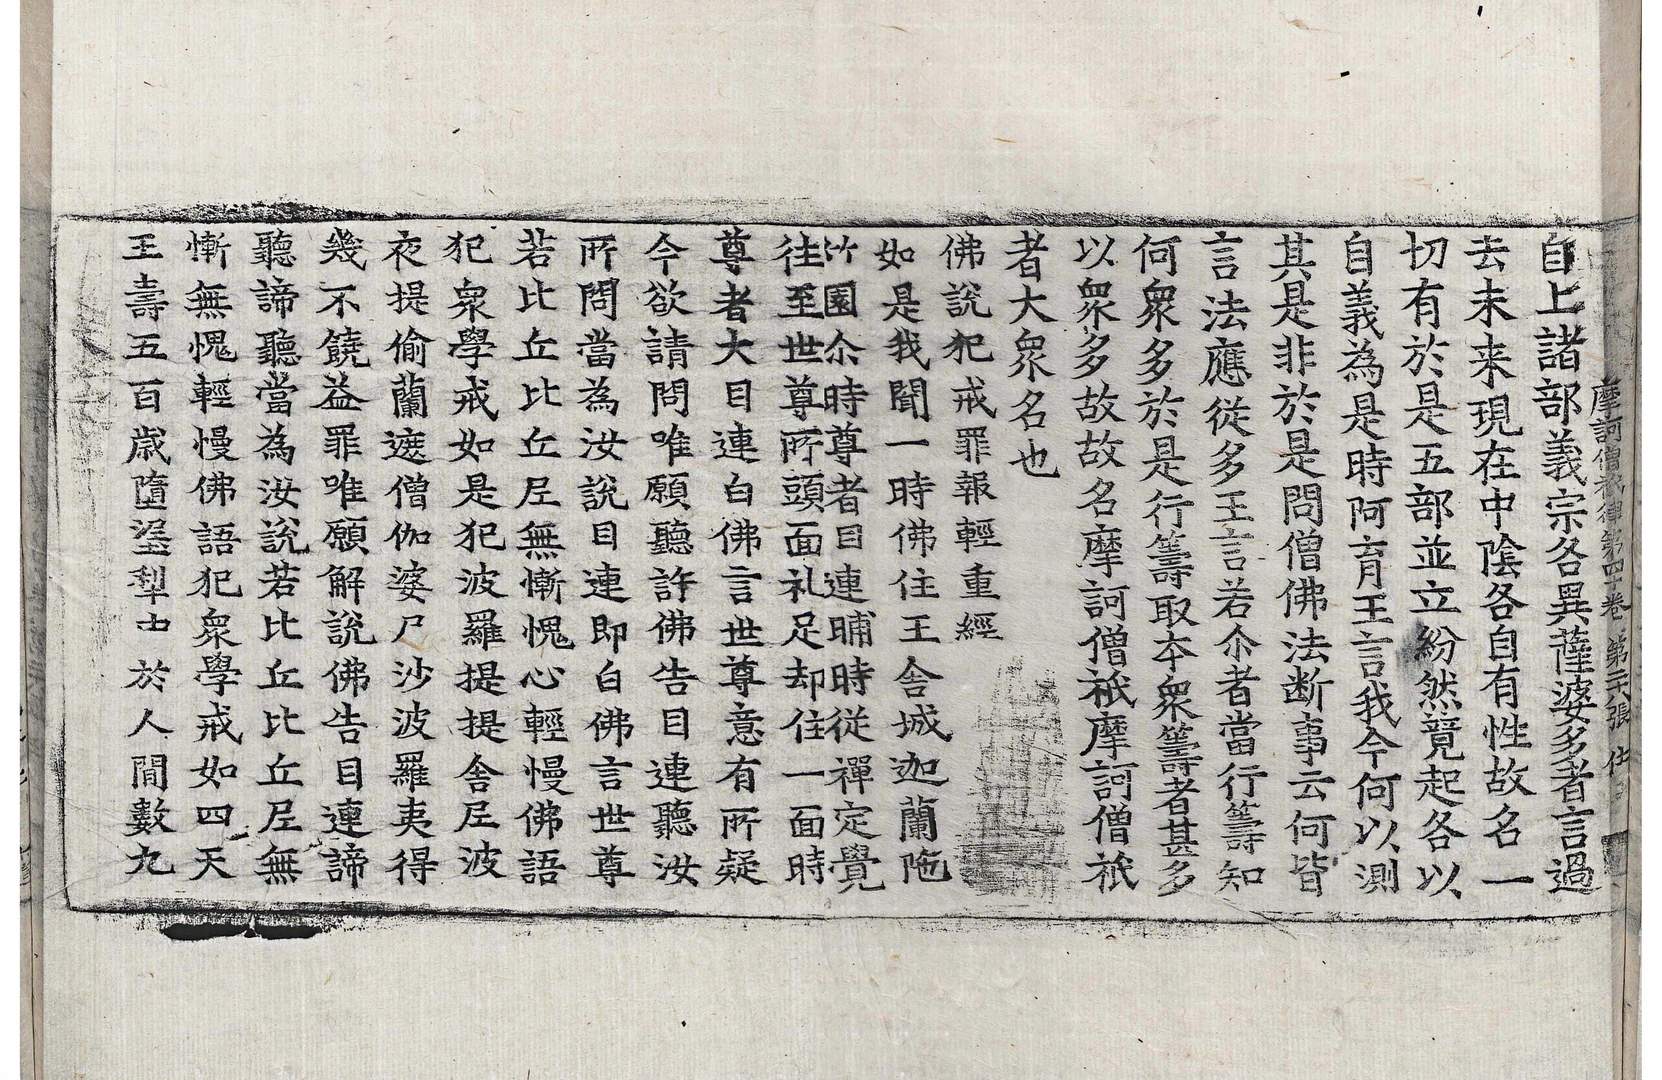 摩訶僧祇律第四十卷 第三十張 仕
自上諸部義宗各異薩婆多者言過
去未来現在中陰各自有性故名一
切有於是五部並立紛然競起各以
自義為是時阿育王言我今何以測
其是非於是問僧佛法断事云何皆
言法應從多王言若尒者當行籌知
何衆多於是行籌取本衆籌者甚多
以衆多故故名摩訶僧祇摩訶僧祇
者大衆名也
佛說犯戒罪報輕重經
如是我聞一時佛住王舍城迦蘭陁
竹園尒時尊者目連晡時從禪定覺
往至世尊所頭面礼足却住一面時
尊者大目連白佛言世尊意有所疑
今欲請問唯願聽許佛告目連聽汝
所問當為汝說目連即白佛言世尊
若比丘比丘尼無慚愧心輕慢佛語
犯衆學戒如是犯波羅提提舍尼波
夜提偷蘭遮僧伽婆尸沙波羅夷得
幾不饒益罪唯願解說佛告目連諦
聽諦聽當為汝說若比丘比丘尼無
慚無愧輕慢佛語犯衆學戒如四天
王壽五百歲墮埿犁中於人間數九